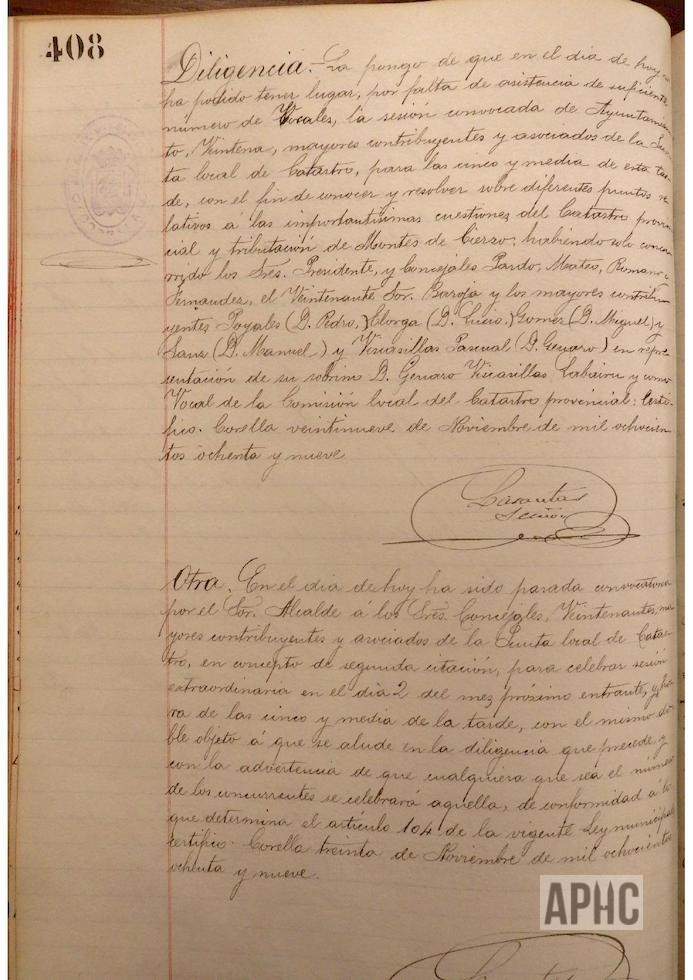 408
Diligencia.- La pongo de que en el dia de hoy no
ha podido tener lugar, por falta de asistencia de suficiente
número de Vocales, la sesión convocada de Ayuntamien-
to, Veintena, mayores contribuyentes y asociados de la Jun-
ta local de Catastro, para las cinco y media de esta tar-
de, con el fin de conocer y resolver sobre diferentes puntos re-
lativos á las importantísimas cuestiones del Catastro provin-
cial y tributación de Montes de Cierzo; habiendo solo concu-
rrido los Sres. Presidente, y Concejales Pardo, Mateo, Romano y
Fernandez, el Veintenante Sor. Baroja y los mayores contribu-
yentes Poyales (D. Pedro,) Elorga (D. Lucio,) Gomez (D. Miguel) y
Sanz (D. Manuel) y Viscasillas Pascual (D. Genaro) en repre-
sentación de su sobrino D. Genaro Viscasillas y como
Vocal de la Comisión local del Catastro provincial: Certi-
fico. Corella veintinueve de Noviembre de mil ochocien-
tos ochenta y nueve
Otra. En el dia de hoy ha sido pasada convocatoria
por el Sor. Alcalde á los Sres. Concejales, Veintenantes, ma-
yores contribuyentes y asociados de la Junta local de Catas-
tro, en concepto de segunda citación, para celebrar sesión
extraordinaria en el dia 2 del mes próximo entrante, y ho-
ra de las cinco y media de la tarde, con el mismo do-
ble objeto á que se alude en la diligencia que precede, y
con la advertencia de que cualquiera que sea el número
de los concurrentes se celebrará aquella, de conformidad á lo
que determina el artículo 104 de la vigente Ley municipal
certifico. Corella treinta de Noviembre de mil ochocientos
ochenta y nueve.
APHC